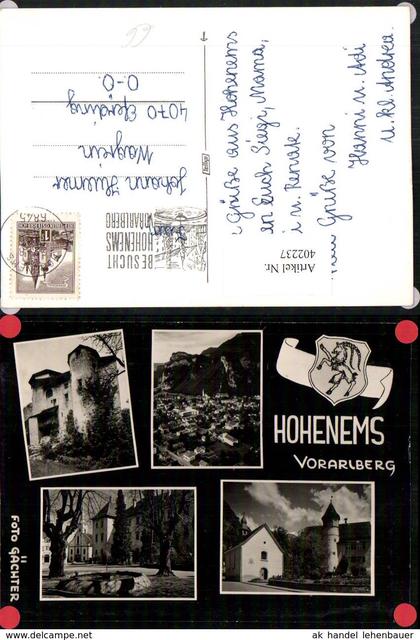 66
Grüße aus Hohenems
an Euch Siegi, Mama,
i u. Renate.
Grüße von
Hanni u. Adi
u. kl. Andrea.
Johann
Wagrein
4070 Eferding
O-Ö.
BESUCHT
HOHENEMS
VORARLBERG
6845
Artikel Nr.
402237
HOHENEMS
VORARLBERG
FOTO GÄCHTER
ak handel lehenbauer